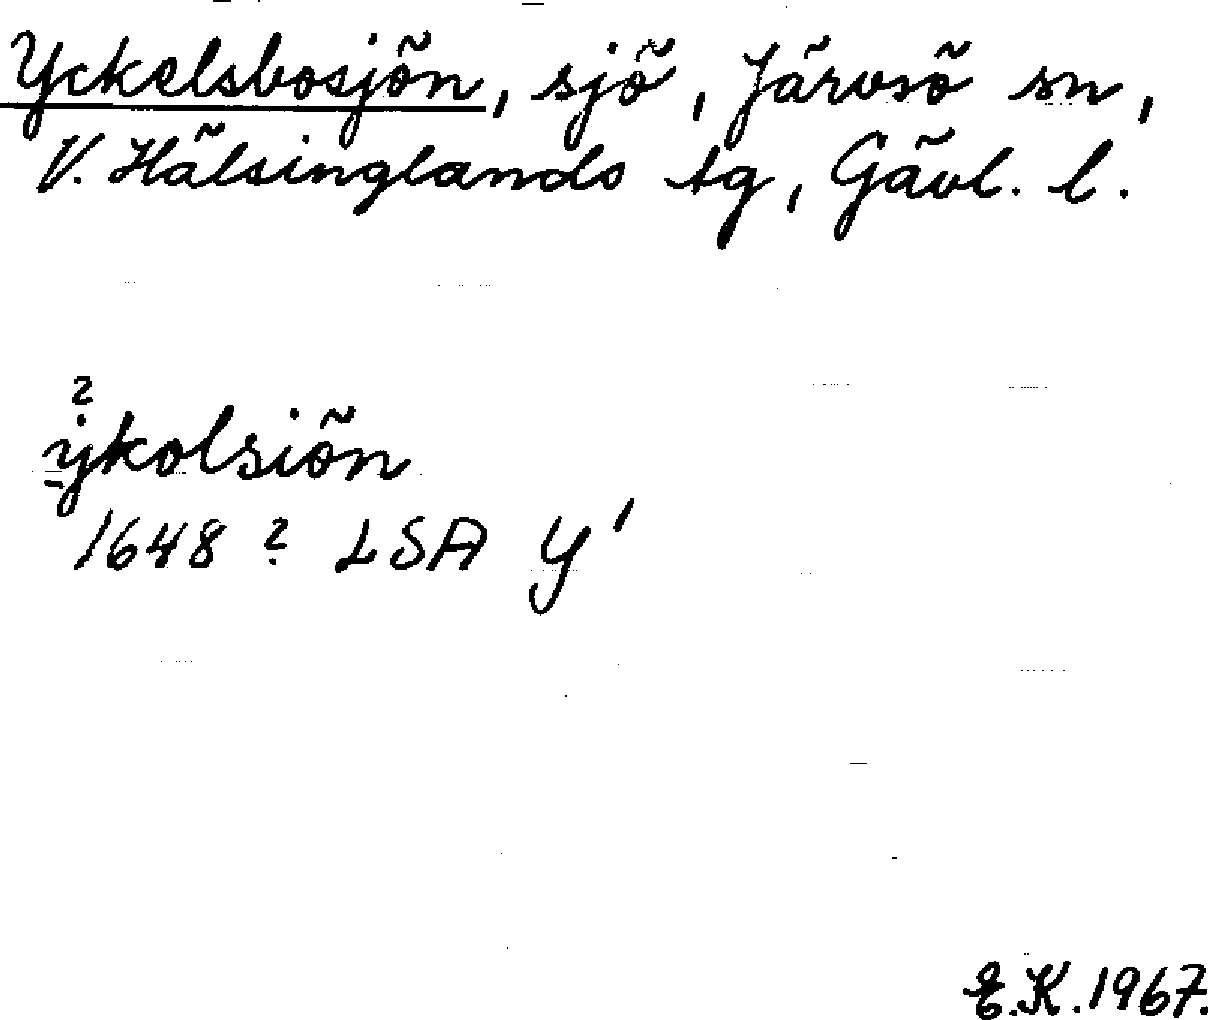 Yckelsbosjön, sjö, Järvsö sn,
V. Hälsinglands tg, Gävl. l.
?
ykolsiön
1648 ? LSA Y'
E.K. 1967.